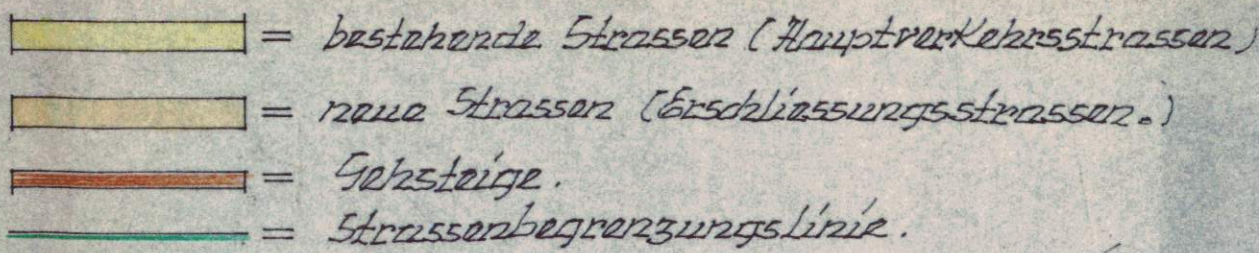 = bestehende Strassen (Hauptverkehrsstrassen)
= neue Strassen (Erschliessungsstrassen.)
= Gehsteige.
= Strassenbegrenzungslinie.